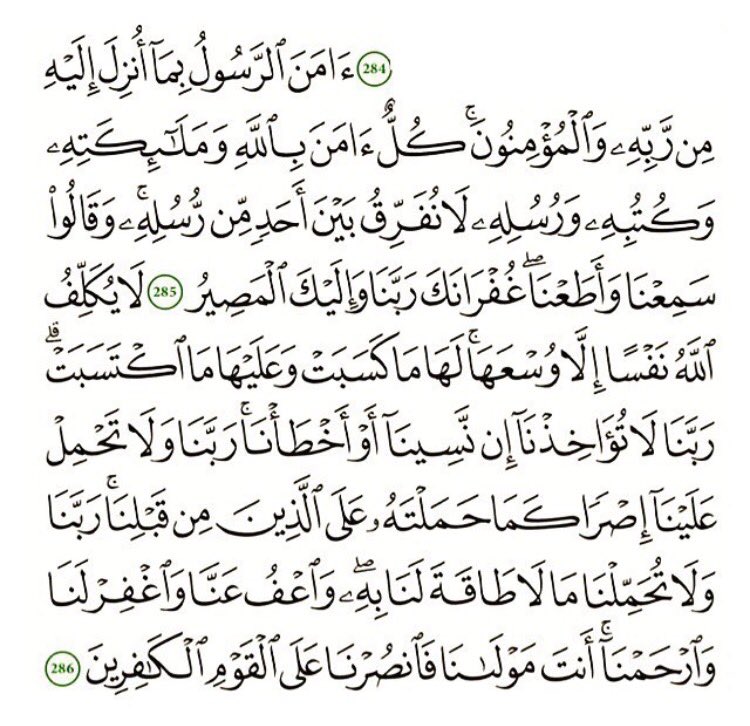 284 ءَامَنَ ٱلرَّسُولُ بِمَآ أُنزِلَ إِلَيْهِ
مِن رَّبِّهِۦ وَٱلْمُؤْمِنُونَ ۚ كُلٌّ ءَامَنَ بِٱللَّهِ وَمَلَٰٓئِكَتِهِۦ
وَكُتُبِهِۦ وَرُسُلِهِۦ لَا نُفَرِّقُ بَيْنَ أَحَدٍ مِّن رُّسُلِهِۦ ۚ وَقَالُوا۟
سَمِعْنَا وَأَطَعْنَا ۖ غُفْرَانَكَ رَبَّنَا وَإِلَيْكَ ٱلْمَصِيرُ 285 لَا يُكَلِّفُ
ٱللَّهُ نَفْسًا إِلَّا وُسْعَهَا ۚ لَهَا مَا كَسَبَتْ وَعَلَيْهَا مَا ٱكْتَسَبَتْ ۗ
رَبَّنَا لَا تُؤَاخِذْنَآ إِن نَّسِينَآ أَوْ أَخْطَأْنَا ۚ رَبَّنَا وَلَا تَحْمِلْ
عَلَيْنَآ إِصْرًا كَمَا حَمَلْتَهُۥ عَلَى ٱلَّذِينَ مِن قَبْلِنَا ۚ رَبَّنَا
وَلَا تُحَمِّلْنَا مَا لَا طَاقَةَ لَنَا بِهِۦ ۖ وَٱعْفُ عَنَّا وَٱغْفِرْ لَنَا
وَٱرْحَمْنَآ ۚ أَنتَ مَوْلَىٰنَا فَٱنصُرْنَا عَلَى ٱلْقَوْمِ ٱلْكَٰفِرِينَ 286